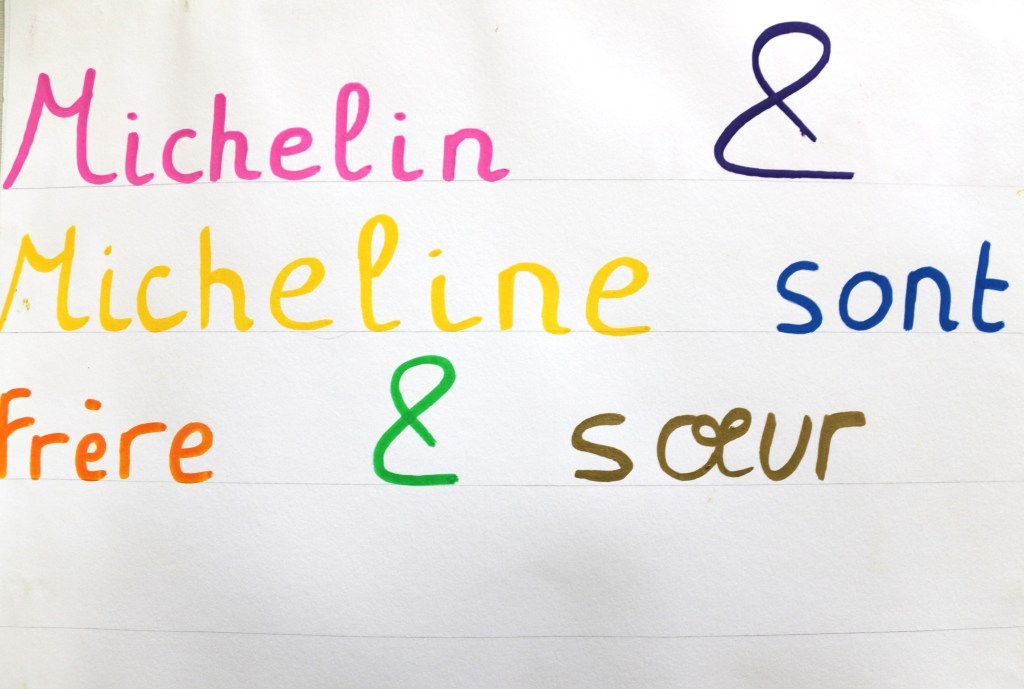 Michelin &
Micheline sont
frère & sœur